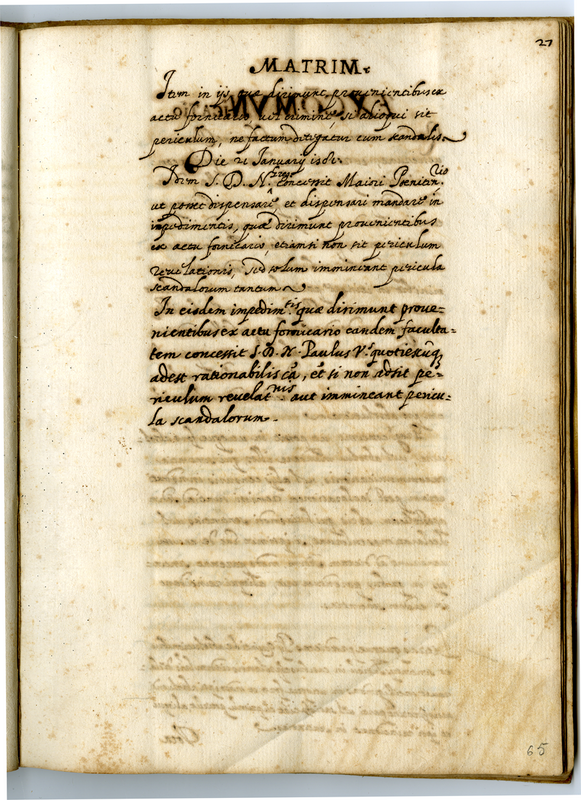 27
MATRIM.
Item in ijs, quæ dirimunt, provenientibus ex
actu fornicario, vel crimine, si alioqui sit
periculum, ne factum detegatur cum scandalis.
Die 21 January
Idem S. D. Nr. concessit Maiori Pœnitenrio
ut posset dispensare, et dispensari mandare in
impedimentis, quæ dirimunt provenientibus
ex actu fornicario, etiamsi non sit periculum
revelationis, sed solum immineant pericula
scandalorum tantum
In eisdem impedimtis. quæ dirimunt prove=
nientibus ex actu fornicario eandem faculta=
tem concessit S. D. N. Paulus Vs. quotiescuq,
adest rationabilis cā, et si non adsit pe=
riculum revelatnis. aut immineant pericu=
la scandalorum.
65